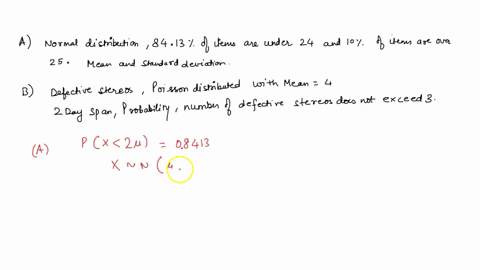 A) Normal distribution, 84.13% of items are under 24 and 10% of items are over
25. Mean and standard deviation.
B) Defective stereos, Poisson distributed with Mean = 4
2 Day span, Probability, number of defective stereos does not exceed 3.
(A) P(X < 24) = 0.8413
X ~ N (μ.